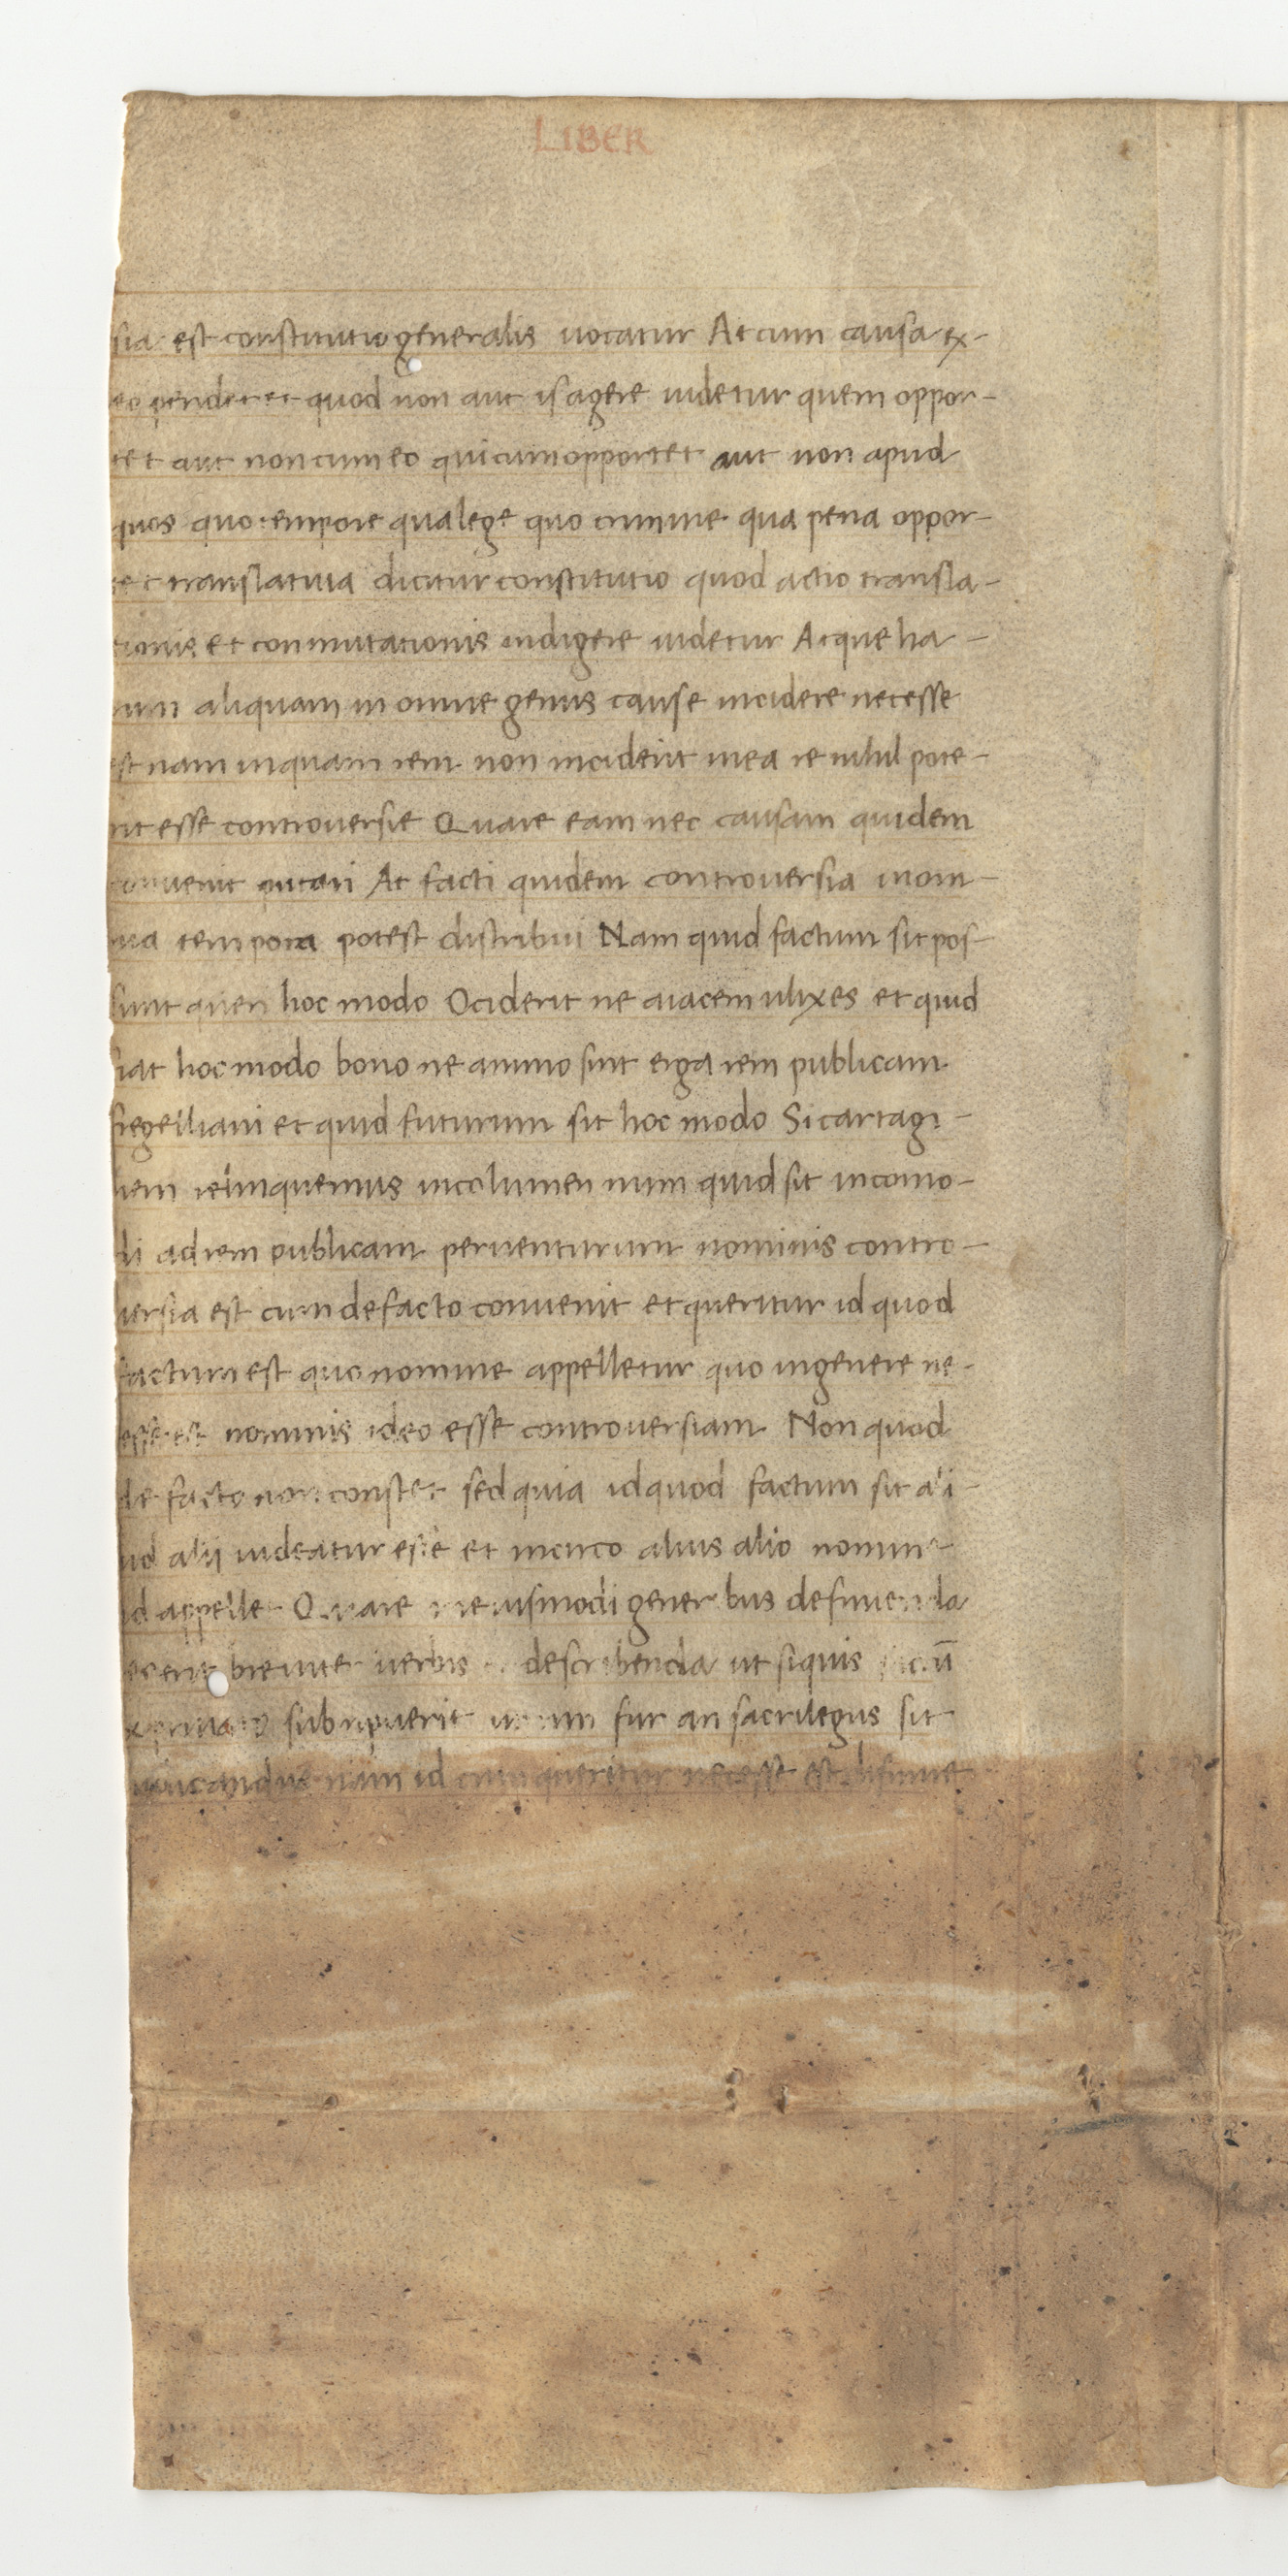 LIBER
sia est constitutio generalis uocatur At cum causa ex-
eo penderet quod non aut is agere uidetur quem oppor-
tet aut non cum eo quicum opportet aut non apud
quos quo tempore qua lege quo crimine qua pena oppor-
tet translatiua dicitur constitutio quod actio transla-
tionis et conmutationis indigere uidetur Atque ha-
rum aliquam in omne genus cause incidere necesse
est nam inquam rem non inciderit inea re nihil pote-
rit esse controuersie Quare eam nec causam quidem
conuenit putari At facti quidem controuersia inom-
nia tempora potest distribui Nam quid factum sit pos-
sunt queri hoc modo Ociderit ne aiacem ulixes et quid
fiat hoc modo bono ne animo sint erga rem publicam
fregellani et quid futurum sit hoc modo Si cartagi-
nem relinquemus incolumen num quid sit incomo-
di ad rem publicam peruenturum nominis contro-
uersia est cum de facto conuenit et queritur id quod
factum est quo nomine appelletur quo ingenere ne-
esse est nominis ideo esse controuersiam Non quod
de facto non constet sed quia id quod factum sit ali-
ud alii uideatur esse et incirco alius alio nomine
id appellet Quare in eiusmodi generibus definienda
res erit breuiter uerbis describenda ut siquis sacrū
ex priuato subripuerit utrum fur an sacrilegus sit
iudicandus nam id cum queritur necesse est difinire